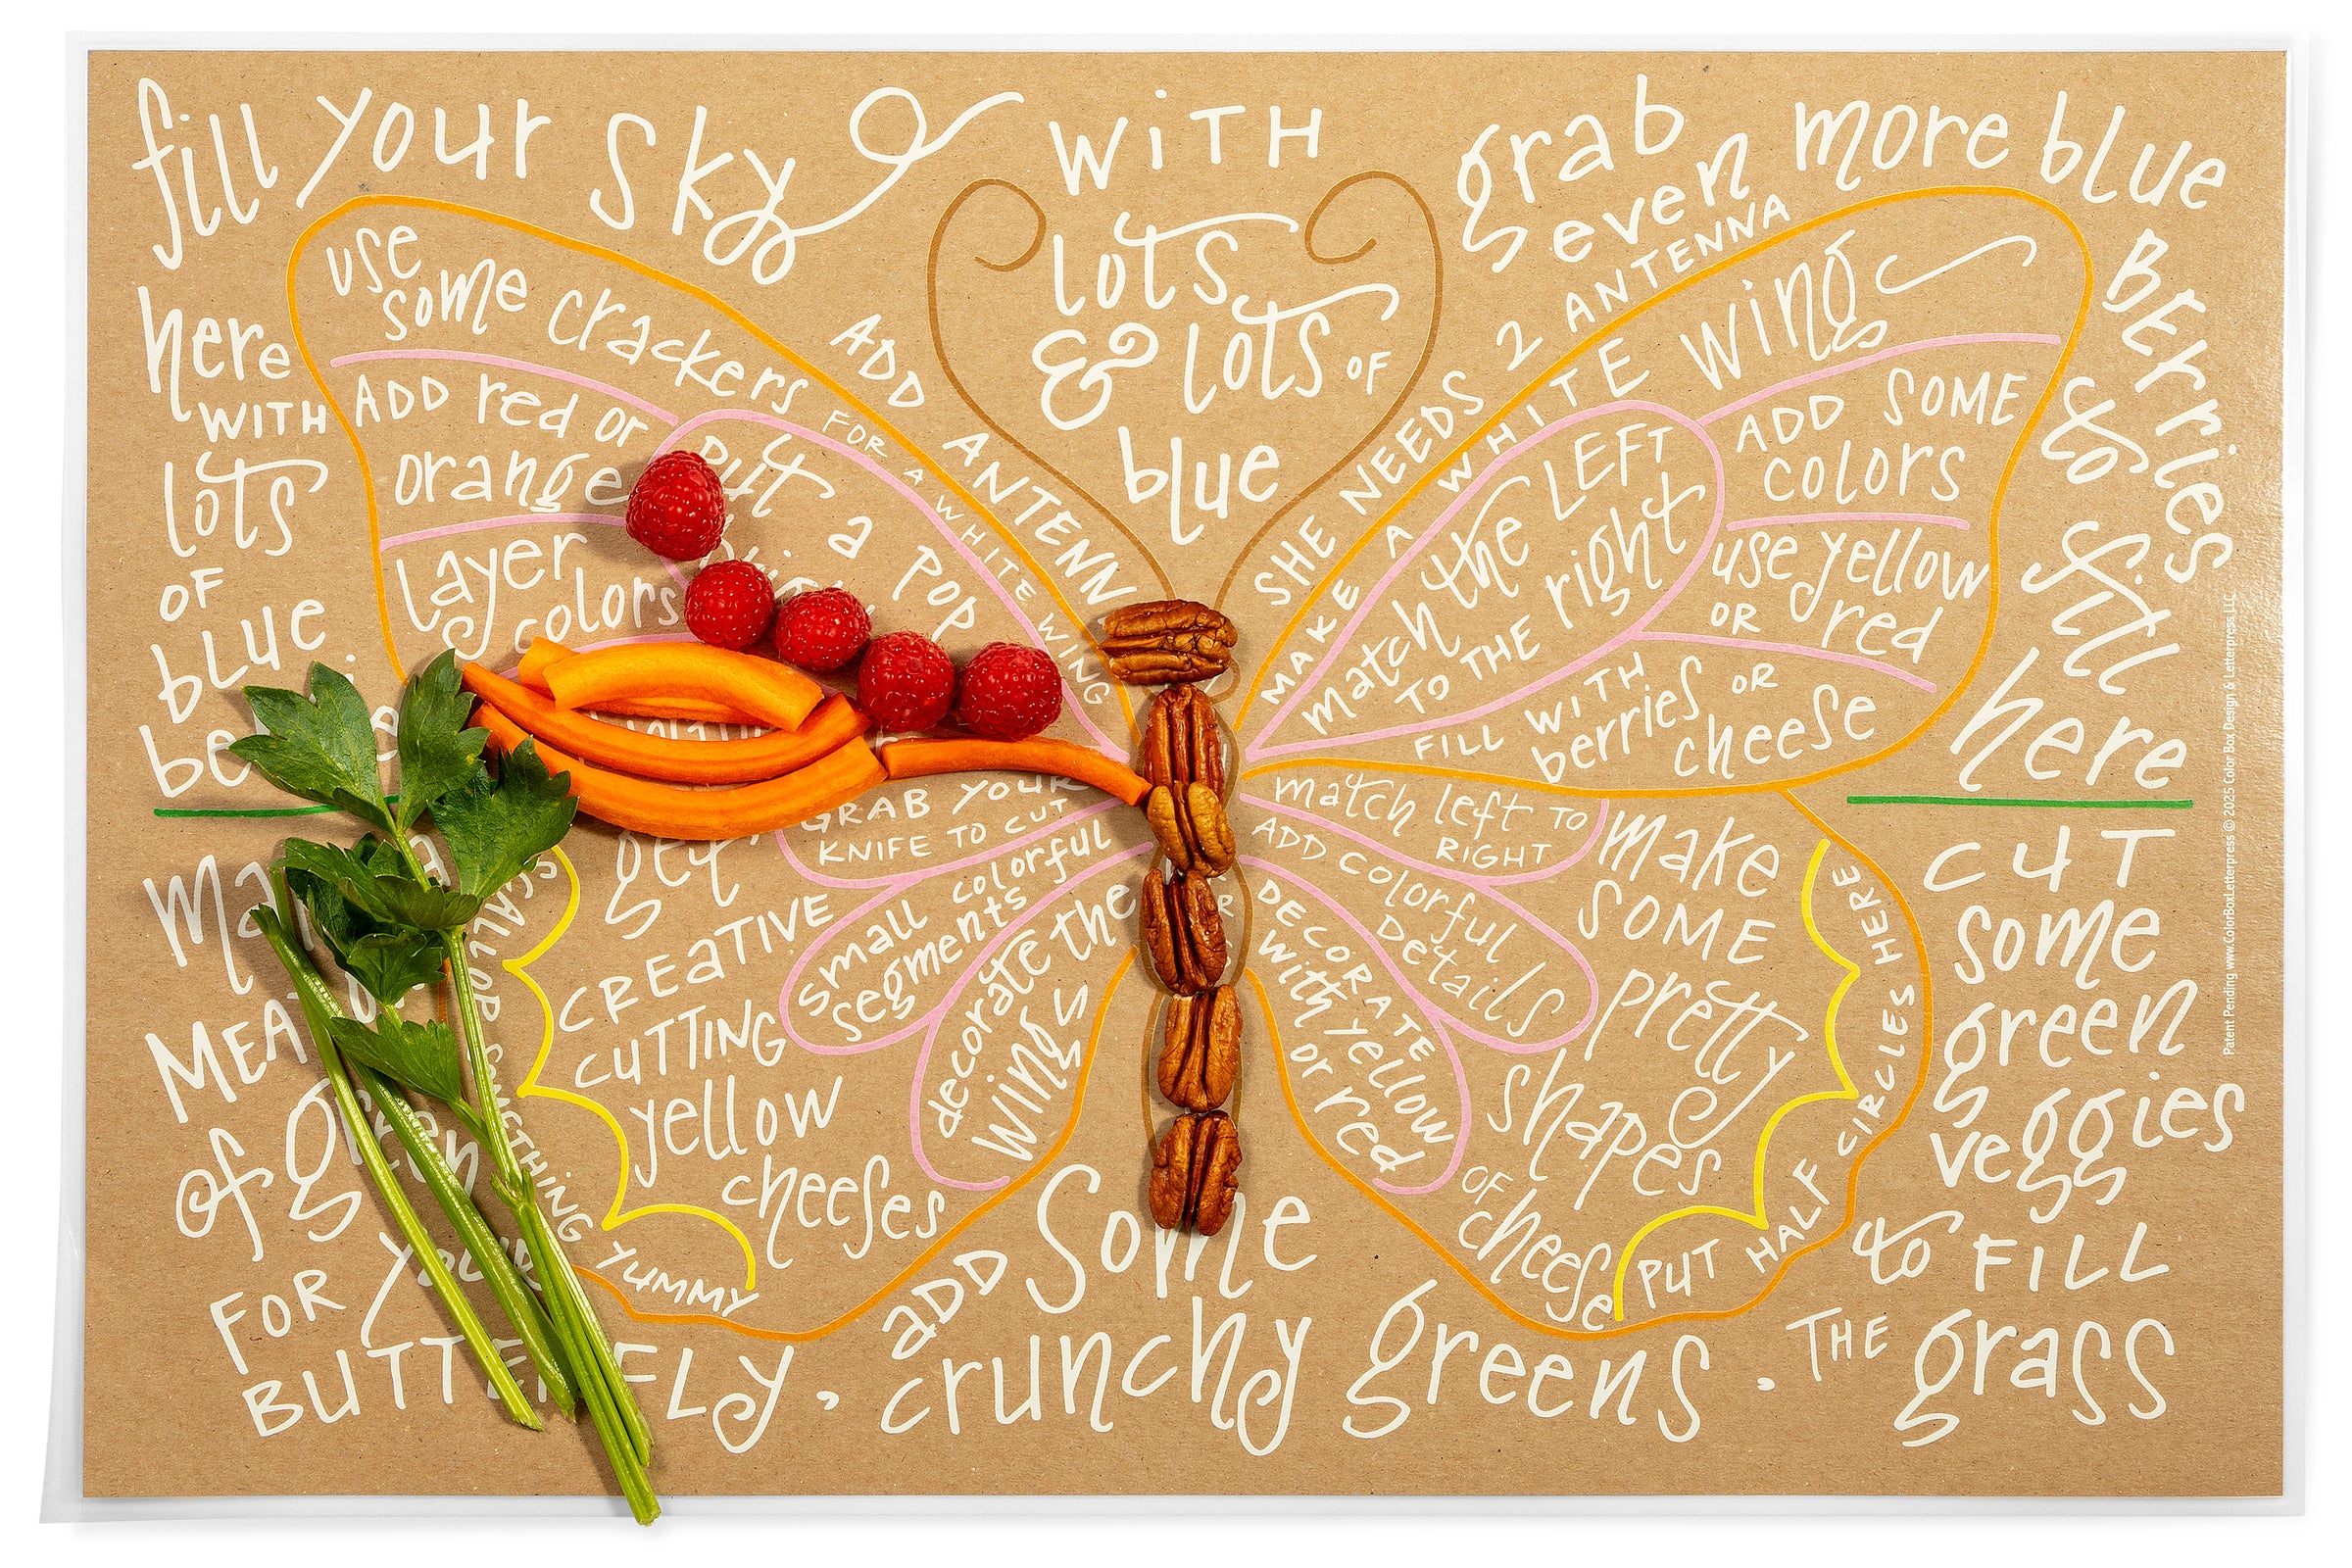 fill your sky
WiTH
lots
& lots OF
blue
grab
even more blue
BERRIES
to fill
here
here
WITH
lots
OF
blue
use
some crackers
FOR A WHITE WING
ADD red or
orange
put a POP
layer
colors
ADD ANTENN
SHE NEEDS 2 ANTENNA
MAKE A WHITE wing
match the LEFT
TO THE right
ADD SOME
colors
use yellow
OR red
FILL WITH
berries OR
cheese
GRAB YOUR
KNIFE TO CUT
small colorful
segments
decorate the
wings
get
CREATIVE
CUTTING
yellow
cheeses
SCALLOP SOMETHING YUMMY
match left TO
RIGHT
ADD colorful
Details
DECORATE
with yellow
or red
make
SOME
pretty
shapes
OF
cheese
PUT HALF CIRCLES HERE
of green
FOR
ADD Some
crunchy greens.
CUT
some
green
veggies
to FILL
THE grass
Patent Pending www.ColorBoxLetterpress © 2025 Color Box Design & Letterpress, LLC